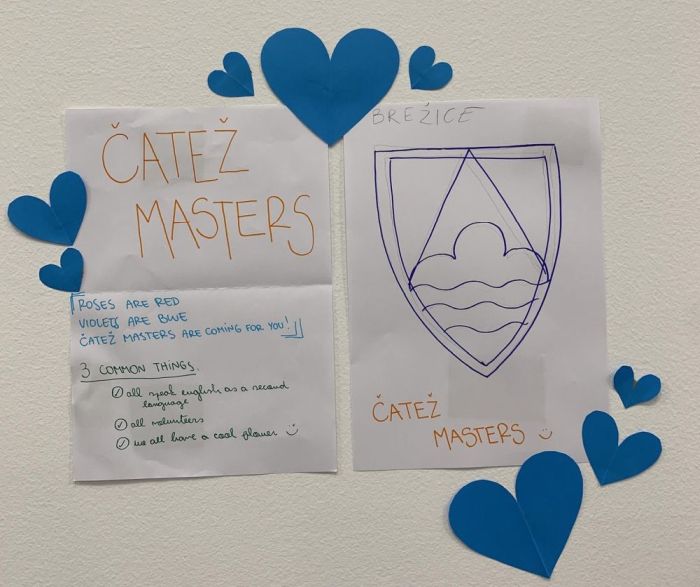 ČATEŽ
MASTERS
ROSES ARE RED
VIOLETS ARE BLUE
ČATEŽ MASTERS ARE COMING FOR YOU!
3 COMMON THINGS
all speak english as a second
language
all volunteers
we all have a cool
BREŽICE
ČATEŽ
MASTERS